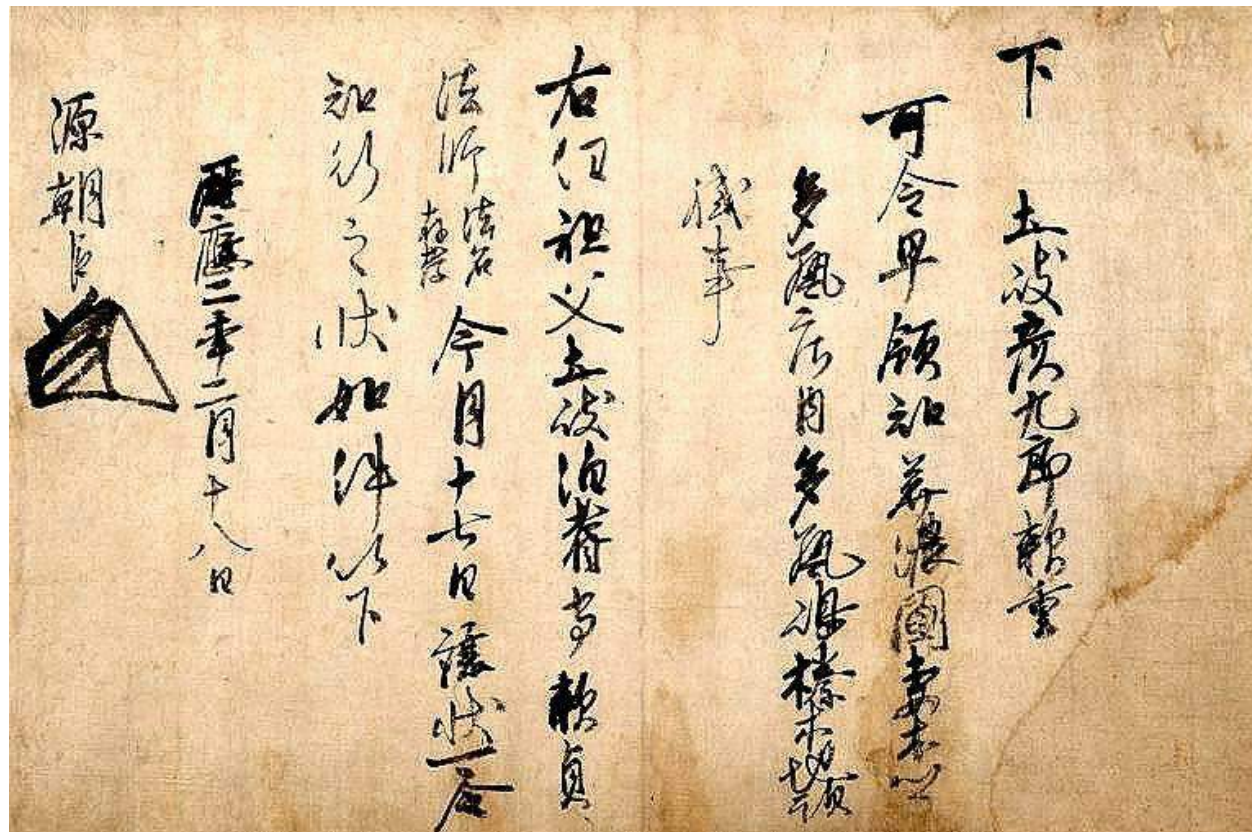 下　土岐彦九郎頼重
可令早領知美濃国妻木郷
多藝庄内多藝嶋榛木地頭
職事
右任祖父土岐伯耆守頼貞
法師法名存孝今月十七日譲状可
知行之状如件以下
暦應二年二月十八日
源朝臣